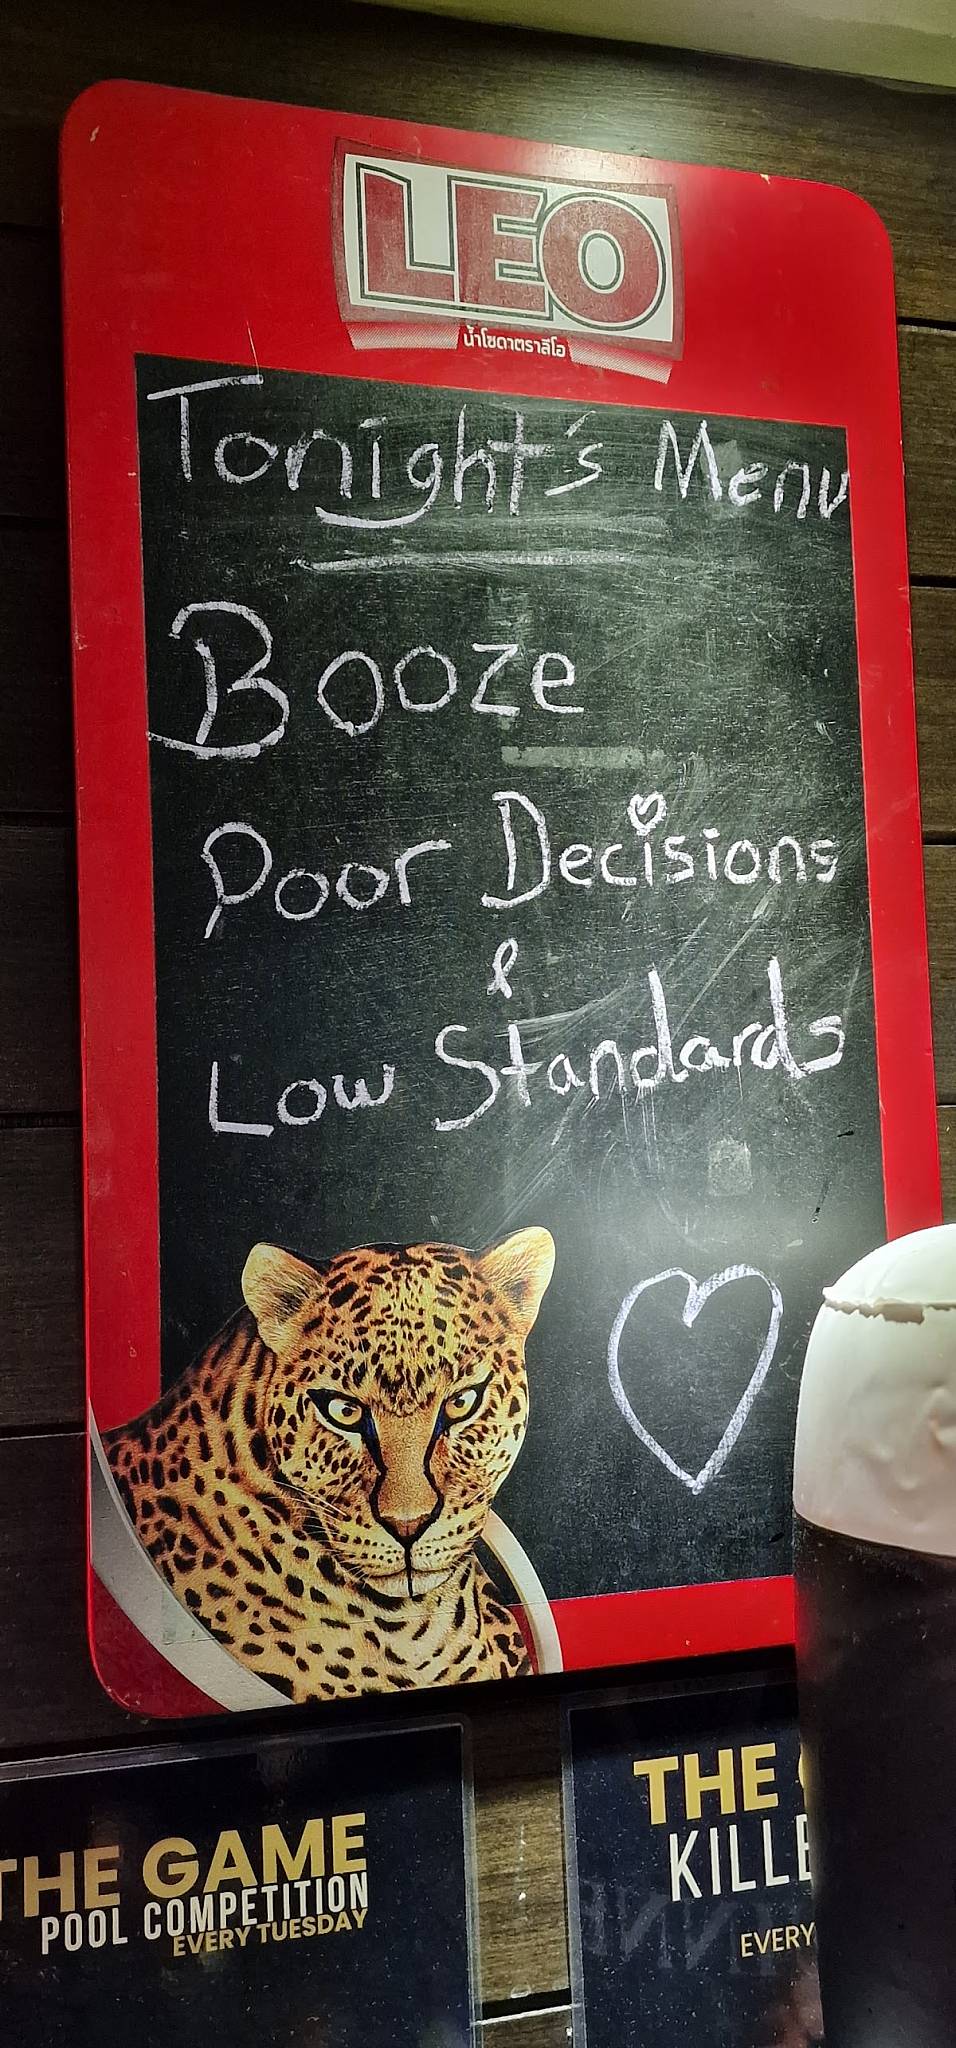 LEO
น้ำโซดาตราลีโอ
Tonight's Menu
Booze
Poor Decisions
&
Low Standards
THE GAME
POOL COMPETITION
EVERY TUESDAY
THE
KILLE
EVERY